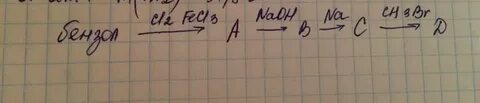 бензол Cl2 FeCl3 → A NaOH → B Na → C CH3Br → D